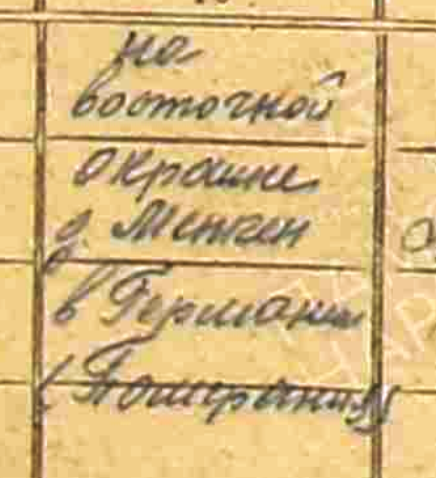 на
восточной
окраине
д. Менкен
в Германии
(Померания)